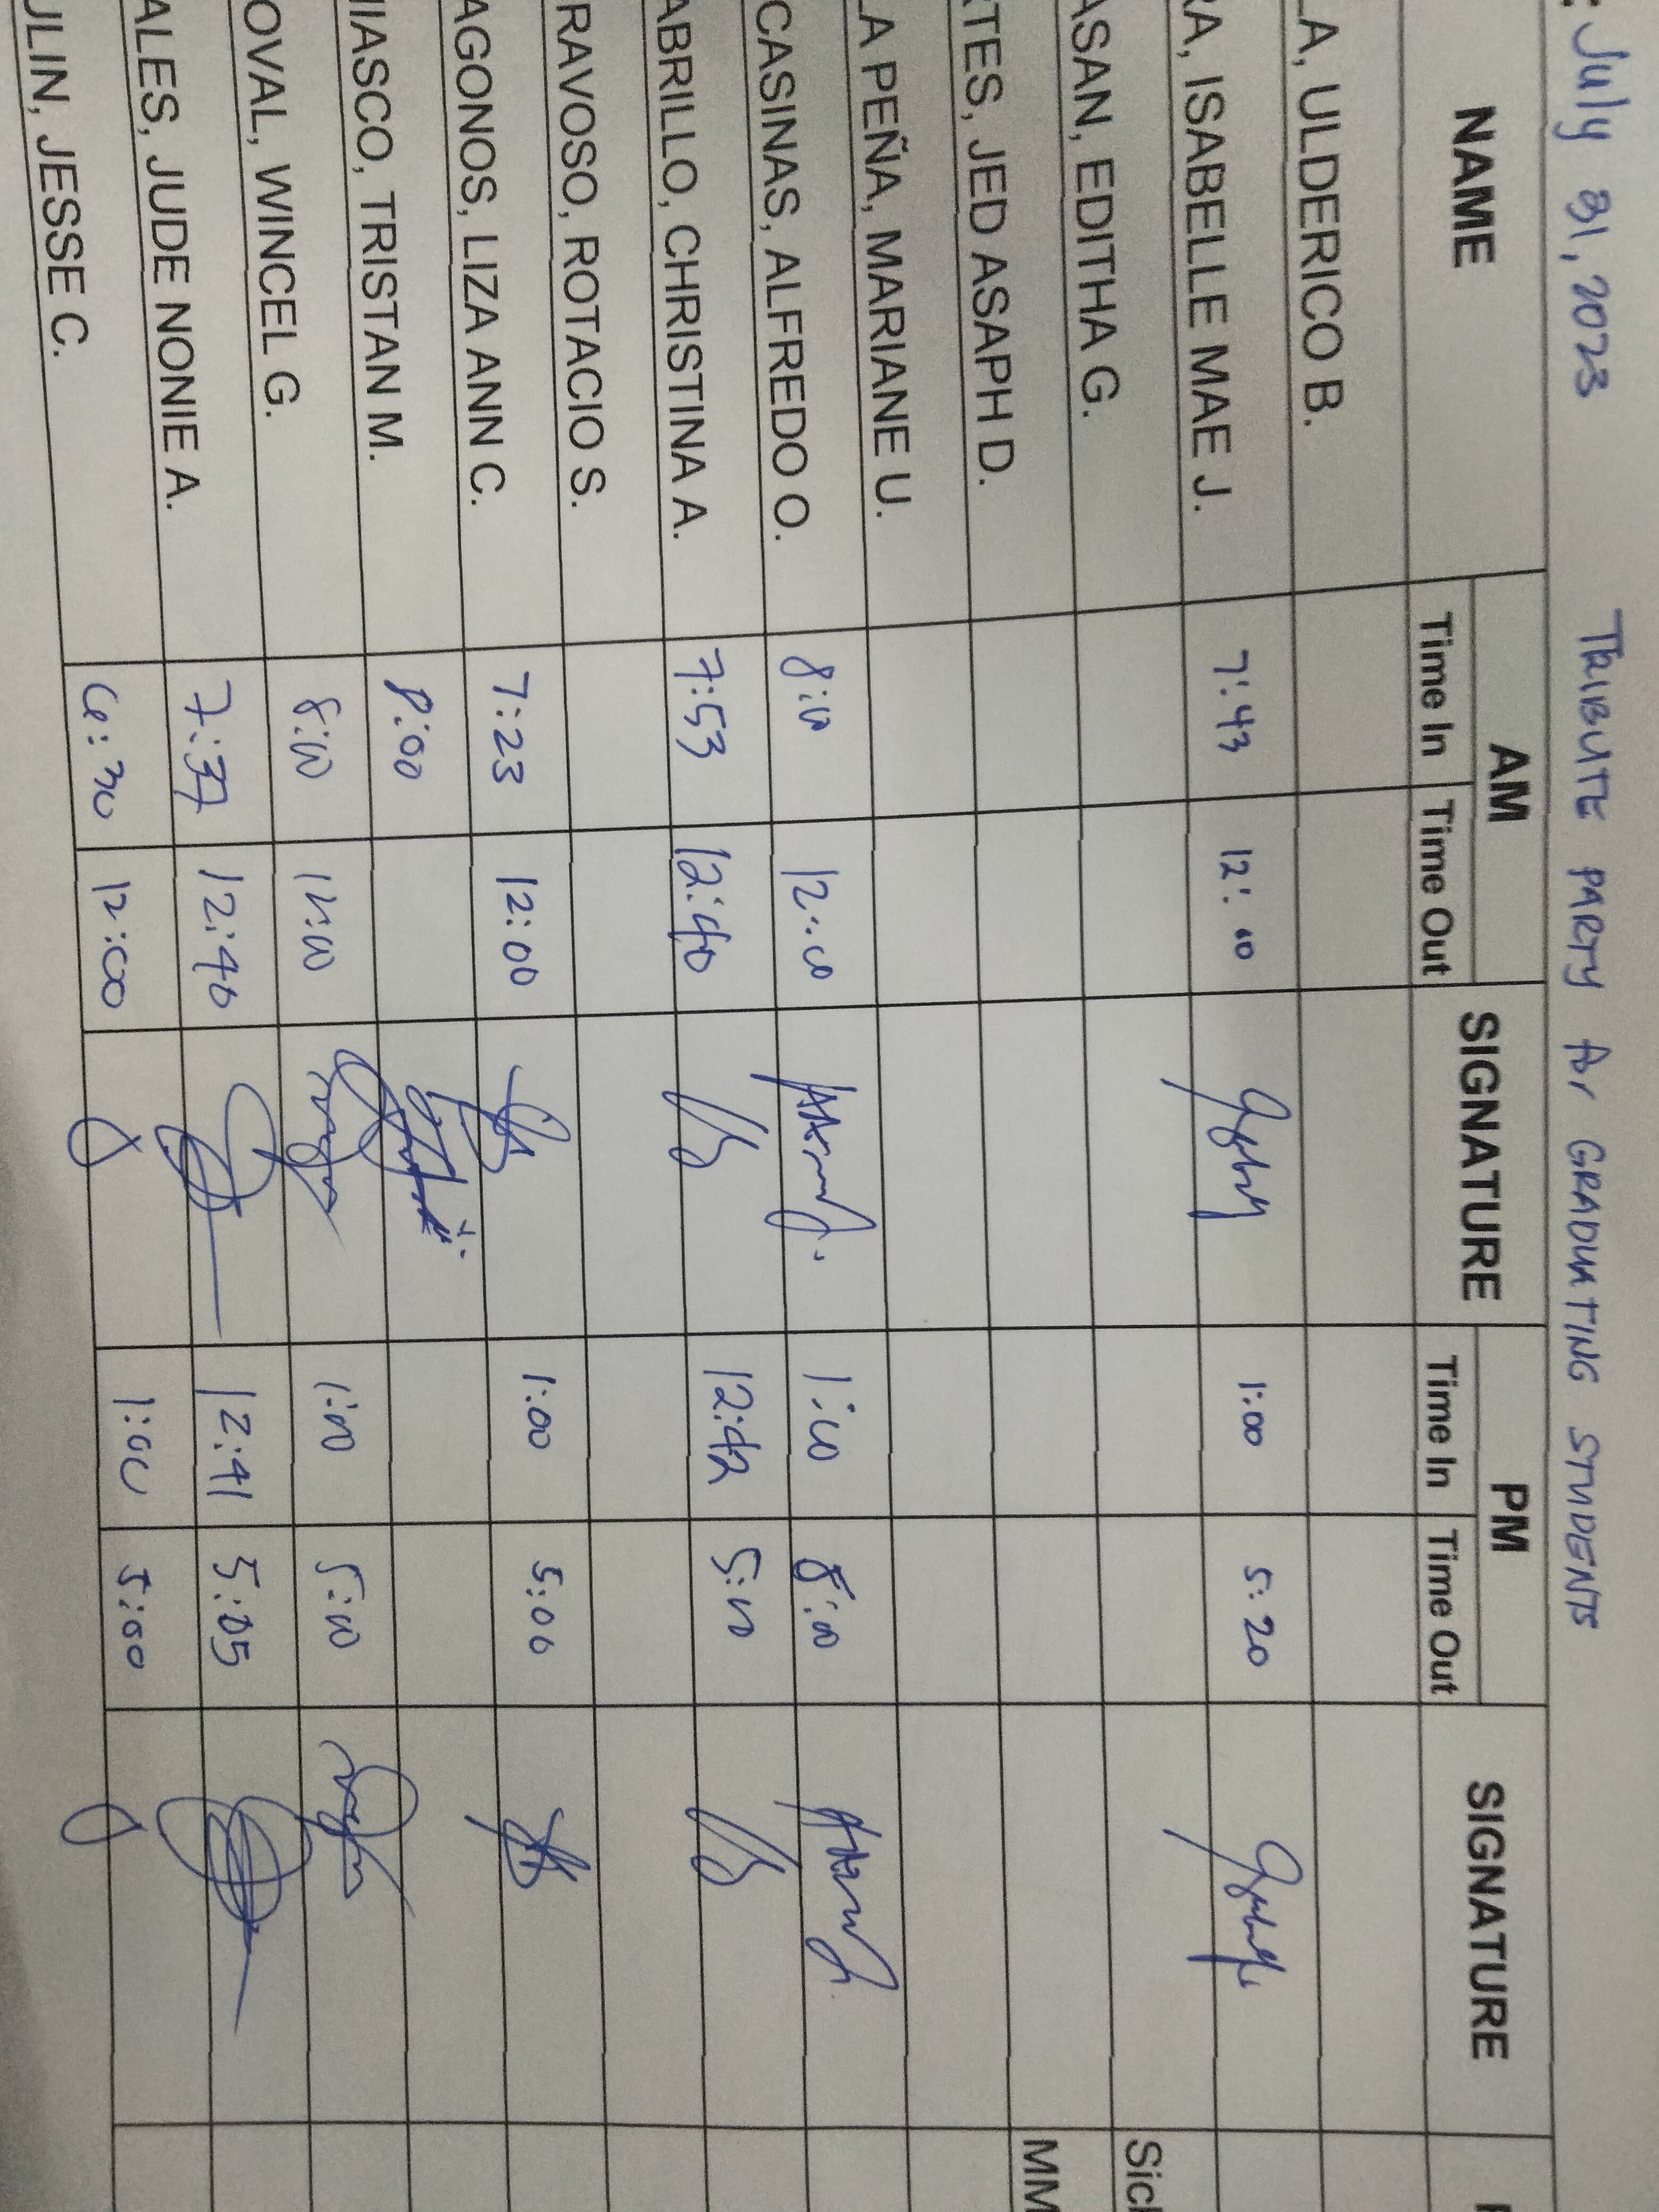 : July 31, 2023 TRIBUTE PARTY for GRADUATING STUDENTS
NAME AM SIGNATURE PM SIGNATURE
Time In Time Out Time In Time Out
LA, ULDERICO B.
RA, ISABELLE MAE J. 7:43 12:00 1:00 5:20
ASAN, EDITHA G. Sick
TES, JED ASAPH D. MM
LA PEÑA, MARIANE U.
CASINAS, ALFREDO O. 8:00 12:00 1:00 5:00
ABRILLO, CHRISTINA A. 7:53 12:40 12:42 5:00
RAVOSO, ROTACIO S.
AGONOS, LIZA ANN C. 7:23 12:00 1:00 5:06
IASCO, TRISTAN M. 8:00
OVAL, WINCEL G. 8:00 12:00 1:00 5:00
ALES, JUDE NONIE A. 7:37 12:40 12:41 5:05
ULIN, JESSE C. 6:30 12:00 1:00 5:00